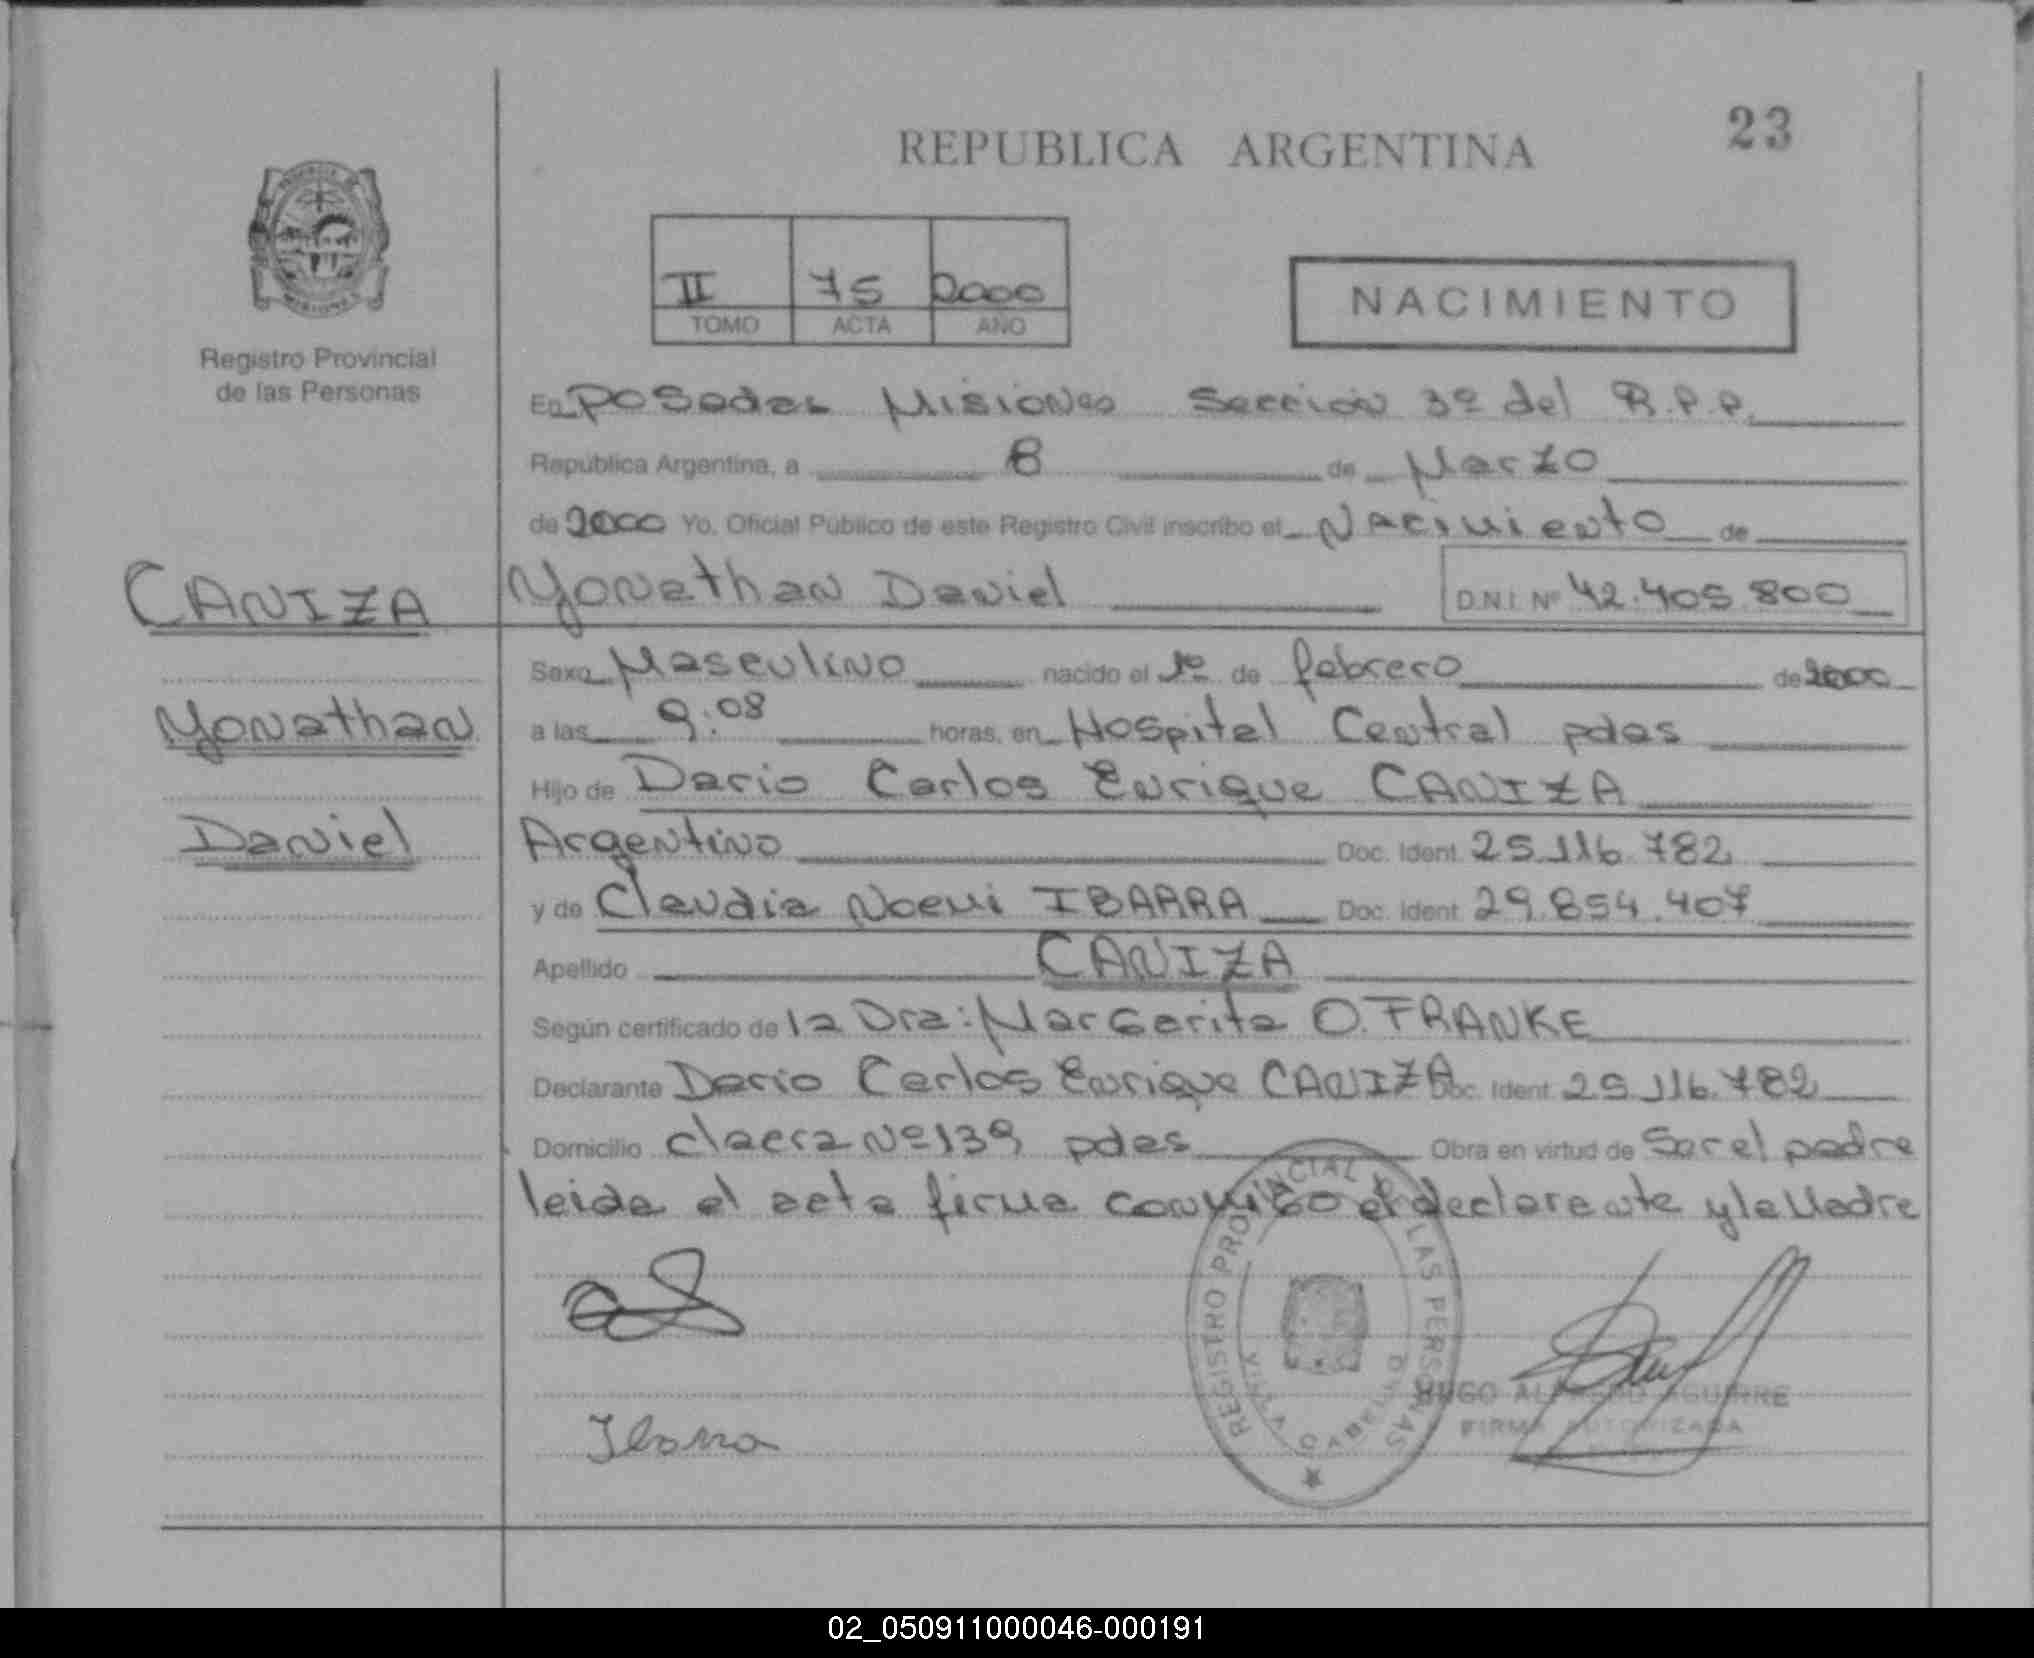 REPUBLICA ARGENTINA
23
Registro Provincial
de las Personas
II 75 2000
TOMO ACTA AÑO
NACIMIENTO
En Posadas Misiones Sección 3º del R.P.P.
República Argentina, a 8 de Marzo
de 2000 Yo, Oficial Público de este Registro Civil inscribo el Nacimiento de
CANIZA
Yonathan Daniel D.N.I. Nº 42.405.800
Yonathan
Daniel
Sexo Masculino nacido el 1º de febrero de 2000
a las 9:08 horas, en Hospital Central pdas
Hijo de Dario Carlos Enrique CANIZA
Argentino Doc. Ident. 25.116.782
y de Claudia Noemi IBARRA Doc. Ident. 29.854.407
Apellido CANIZA
Según certificado de la Dra: Margarita O. FRANKE
Declarante Dario Carlos Enrique CANIZA Doc. Ident. 25.116.782
Domicilio claera Nº 139 pdas Obra en virtud de Ser el padre
leida el acta firma conmigo el declarante y la Madre
REGISTRO PROVINCIAL DE LAS PERSONAS
HUGO ALFREDO AGUIRRE
FIRMA AUTORIZADA
02_050911000046-000191